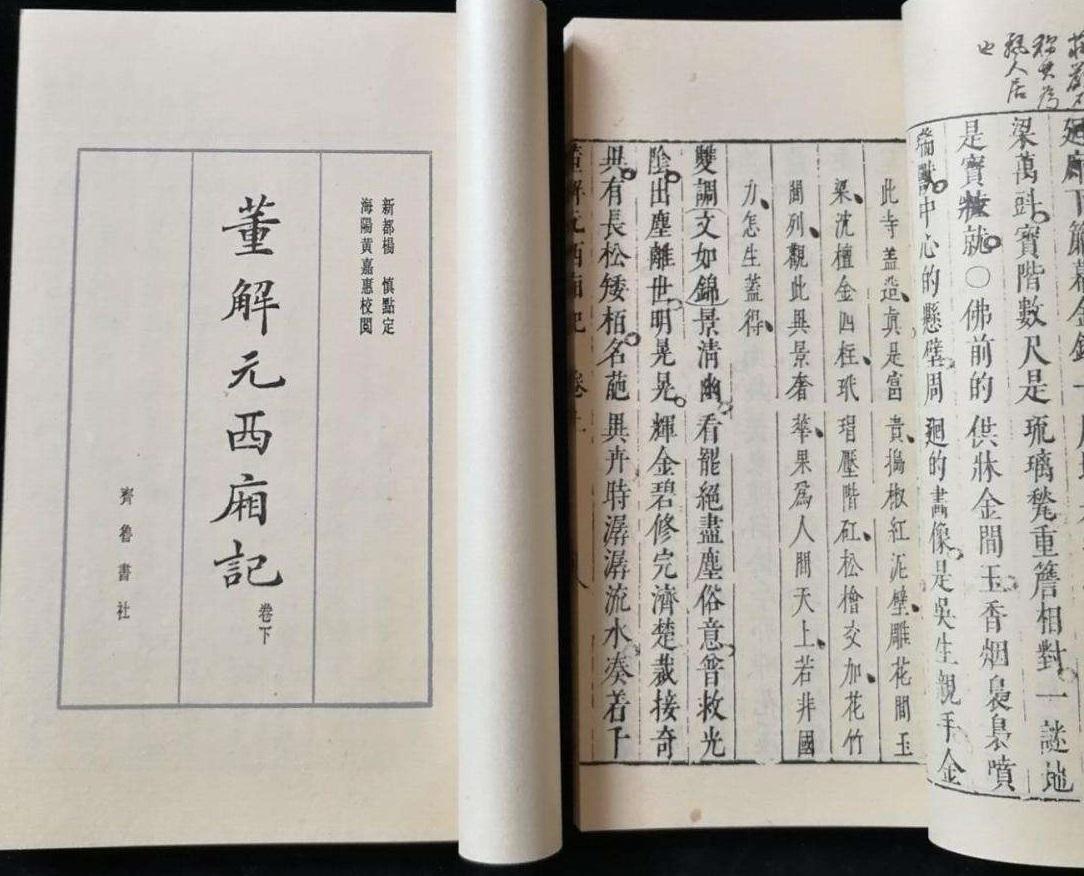 新都楊 慎點定
海陽黃嘉惠校閱
董解元西廂記
卷下
齊魯書社
梁萬㪷寶階數尺是琉璃甃重簷相對一謎地
是寶粧就○佛前的供牀金間玉香烟裊裊噴
瑞獸中心的懸壁周廻的畫像是吳生親手金
此寺蓋造真是富貴搗椒紅泥壁雕花間玉
梁沈檀金四柱玳瑁壓階矼松檜交加花竹
間列觀此異景奢華果爲人間天上若非國
力怎生蓋得
雙調文如錦景清幽看罷絕盡塵俗意普救光
陰出塵離世明晃晃輝金碧修完濟楚裁接奇
異有長松矮栢名葩異卉時潺潺流水凑着千
董解元西廂記 卷上